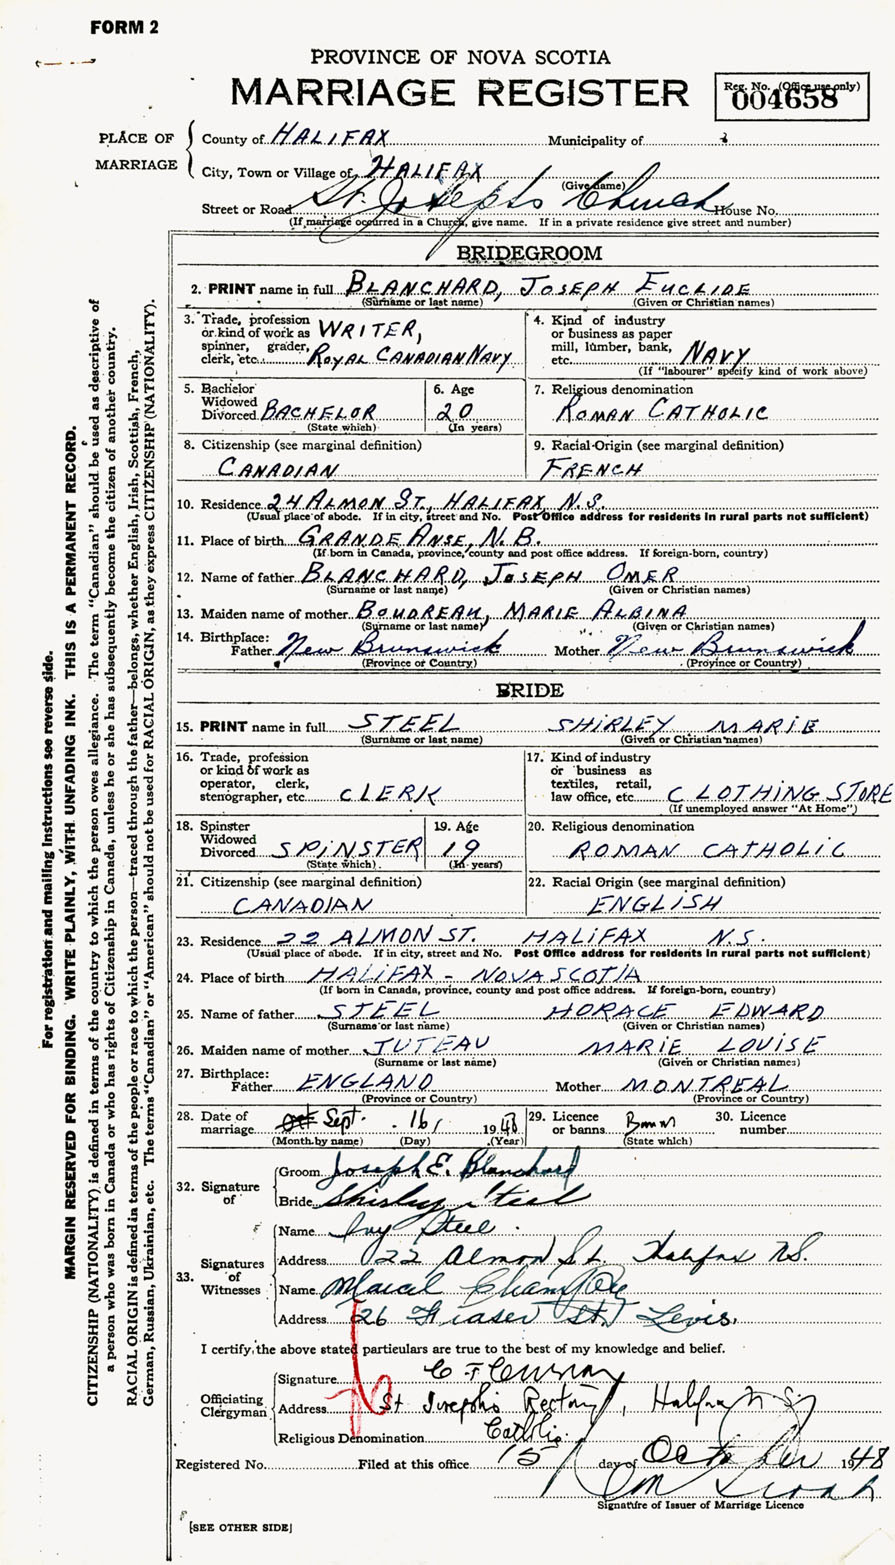 FORM 2
PROVINCE OF NOVA SCOTIA
MARRIAGE REGISTER
Reg. No. (Office use only)
004658
PLACE OF MARRIAGE
County of HALIFAX Municipality of
City, Town or Village of HALIFAX
(Give name)
Street or Road St. Josephs Church House No.
(If marriage occurred in a Church, give name. If in a private residence give street and number)
BRIDEGROOM
2. PRINT name in full BLANCHARD, JOSEPH EUCLIDE
(Surname or last name) (Given or Christian names)
3. Trade, profession or kind of work as spinner, grader, clerk, etc. WRITER, ROYAL CANADIAN NAVY
4. Kind of industry or business as paper mill, lumber, bank, etc. NAVY
(If "labourer" specify kind of work above)
5. Bachelor Widowed Divorced BACHELOR
(State which)
6. Age 20
(In years)
7. Religious denomination
ROMAN CATHOLIC
8. Citizenship (see marginal definition)
CANADIAN
9. Racial Origin (see marginal definition)
FRENCH
10. Residence 24 ALMON ST., HALIFAX, N.S.
(Usual place of abode. If in city, street and No. Post Office address for residents in rural parts not sufficient)
11. Place of birth GRANDE ANSE, N.B.
(If born in Canada, province, county and post office address. If foreign-born, country)
12. Name of father BLANCHARD, JOSEPH OMER
(Surname or last name) (Given or Christian names)
13. Maiden name of mother BOUDREAU, MARIE ALBINA
(Surname or last name) (Given or Christian names)
14. Birthplace:
Father New Brunswick Mother New Brunswick
(Province or Country) (Province or Country)
BRIDE
15. PRINT name in full STEEL SHIRLEY MARIE
(Surname or last name) (Given or Christian names)
16. Trade, profession or kind of work as operator, clerk, stenographer, etc. CLERK
17. Kind of industry or business as textiles, retail, law office, etc. CLOTHING STORE
(If unemployed answer "At Home")
18. Spinster Widowed Divorced SPINSTER
(State which)
19. Age 19
(In years)
20. Religious denomination
ROMAN CATHOLIC
21. Citizenship (see marginal definition)
CANADIAN
22. Racial Origin (see marginal definition)
ENGLISH
23. Residence 22 ALMON ST. HALIFAX N.S.
(Usual place of abode. If in city, street and No. Post Office address for residents in rural parts not sufficient)
24. Place of birth HALIFAX - NOVA SCOTIA
(If born in Canada, province, county and post office address. If foreign-born, country)
25. Name of father STEEL HORACE EDWARD
(Surname or last name) (Given or Christian names)
26. Maiden name of mother JUTEAU MARIE LOUISE
(Surname or last name) (Given or Christian names)
27. Birthplace:
Father ENGLAND Mother MONTREAL
(Province or Country) (Province or Country)
28. Date of marriage Sept. 16, 1948
(Month by name) (Day) (Year)
29. Licence or banns
(State which)
30. Licence number
32. Signature of
Groom Joseph E. Blanchard
Bride Shirley Steel
33. Signatures of Witnesses
Name Ivy Steel
Address 22 Almon St. Halifax N.S.
Name Marcel
Address 26 Fraser St. Levis,
I certify the above stated particulars are true to the best of my knowledge and belief.
Officiating Clergyman
Signature
Address St Joseph's Rectory, Halifax N S
Religious Denomination Catholic
Registered No. Filed at this office 15 day of October 1948
Signature of Issuer of Marriage Licence
[SEE OTHER SIDE]
For registration and mailing instructions see reverse side.
MARGIN RESERVED FOR BINDING. WRITE PLAINLY, WITH UNFADING INK. THIS IS A PERMANENT RECORD.
CITIZENSHIP (NATIONALITY) is defined in terms of the country to which the person owes allegiance. The term "Canadian" should be used as descriptive of
a person who was born in Canada or who has rights of Citizenship in Canada, unless he or she has subsequently become the citizen of another country.
RACIAL ORIGIN is defined in terms of the people or race to which the person—traced through the father—belongs, whether English, Irish, Scottish, French,
German, Russian, Ukrainian, etc. The terms "Canadian" or "American" should not be used for RACIAL ORIGIN, as they express CITIZENSHIP (NATIONALITY).